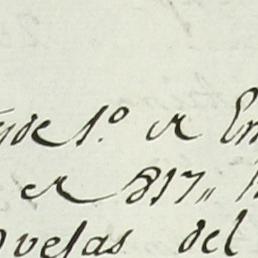 de 1.º de En
de 817,,
ovejas del